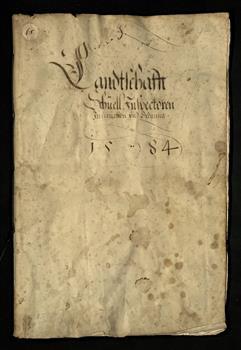 Landtschafft
Schuell Inspectoren
Instruction vnd Ordnung
1584